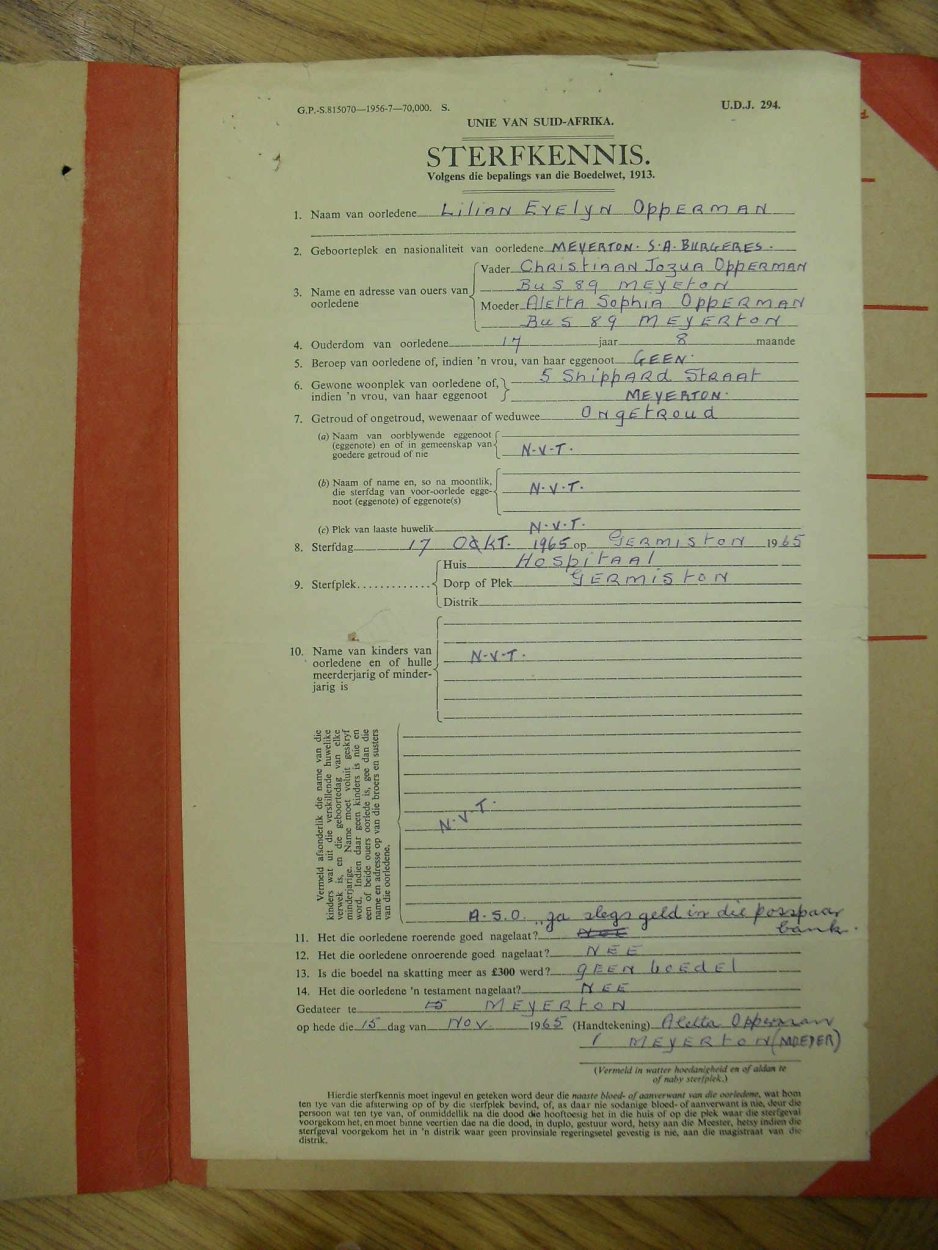 G.P.-S.815070—1956-7—70,000. S.
U.D.J. 294.
UNIE VAN SUID-AFRIKA.
STERFKENNIS.
Volgens die bepalings van die Boedelwet, 1913.
1. Naam van oorledene Lilian Evelyn Opperman
2. Geboorteplek en nasionaliteit van oorledene MEYERTON. S.A. BURGERES.
3. Name en adresse van ouers van oorledene
Vader Christiaan Jozua Opperman
Bus 89 MEYETON
Moeder Aletta Sophia Opperman
Bus 89 MEYERTON
4. Ouderdom van oorledene 17 jaar 8 maande
5. Beroep van oorledene of, indien 'n vrou, van haar eggenoot GEEN.
6. Gewone woonplek van oorledene of, 5 Shippard Straat
indien 'n vrou, van haar eggenoot MEYERTON.
7. Getroud of ongetroud, wewenaar of weduwee Ongetroud
(a) Naam van oorblywende eggenoot
(eggenote) en of in gemeenskap van
goedere getroud of nie N.V.T.
(b) Naam of name en, so na moontlik,
die sterfdag van voor-oorlede egge-
noot (eggenote) of eggenote(s) N.V.T.
(c) Plek van laaste huwelik N.V.T.
8. Sterfdag 17 OKT. 1965 op GERMISTON 1965
9. Sterfplek
Huis Hospitaal
Dorp of Plek GERMISTON
Distrik
10. Name van kinders van
oorledene en of hulle
meerderjarig of minder-
jarig is
N.V.T.
Vermeld afsonderlik die name van die
kinders wat uit die verskillende huwelike
verwek is, en die geboortedag van elke
minderjarige. Name moet voluit geskryf
word. Indien daar geen kinders is nie en
een of beide ouers oorlede is, gee dan die
name en adresse op van die broers en susters
van die oorledene.
N.V.T.
A.S.O. ja slegs geld in die posspaar
bank.
11. Het die oorledene roerende goed nagelaat? NEE
12. Het die oorledene onroerende goed nagelaat? NEE
13. Is die boedel na skatting meer as £300 werd? geen boedel
14. Het die oorledene 'n testament nagelaat? NEE
Gedateer te 15 MEYERTON
op hede die 15 dag van Nov 1965 (Handtekening) Aletta Opperman
MEYERTON (MOEDER)
(Vermeld in watter hoedanigheid en of aldan te
of naby sterfplek.)
Hierdie sterfkennis moet ingevul en geteken word deur die naaste bloed- of aanverwant van die oorledene, wat hom
ten tye van die afsterwing op of by die sterfplek bevind, of, as daar nie sodanige bloed- of aanverwant is nie, deur die
persoon wat ten tye van, of onmiddellik na die dood die hooftoesig het in die huis of op die plek waar die sterfgeval
voorgekom het, en moet binne veertien dae na die dood, in duplo, gestuur word, hetsy aan die Meester, hetsy indien die
sterfgeval voorgekom het in 'n distrik waar geen provinsiale regeringsetel gevestig is nie, aan die magistraat van die
distrik.